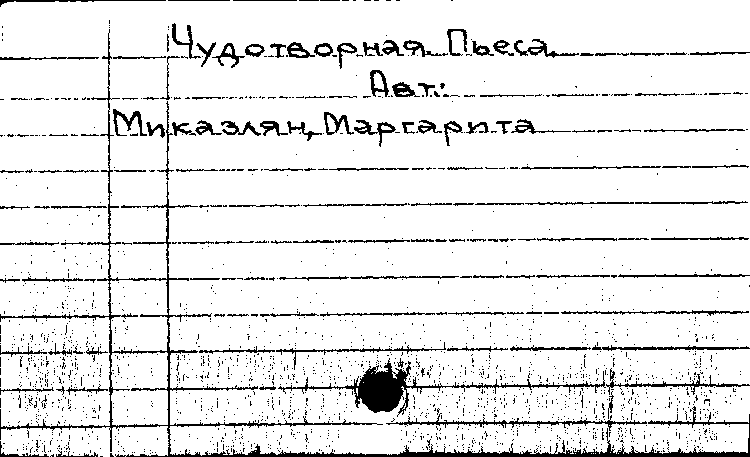 Чудотворная. Пьеса.
Авт.:
Миказлян, Маргарита